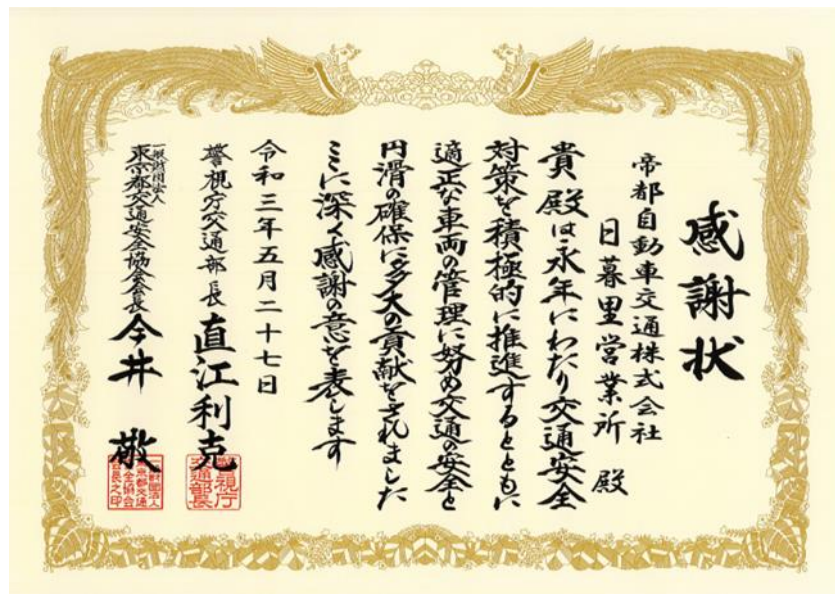 感謝状
帝都自動車交通株式会社
日暮里営業所 殿
貴殿は永年にわたり交通安全
対策を積極的に推進するとともに
適正な車両の管理に努め交通の安全と
円滑の確保に多大の貢献をされました
ここに深く感謝の意を表します
令和三年五月二十七日
警視庁交通部長 直江利克
警視庁
交通部長
一般財団法人
東京都交通安全協会会長 今井 敬